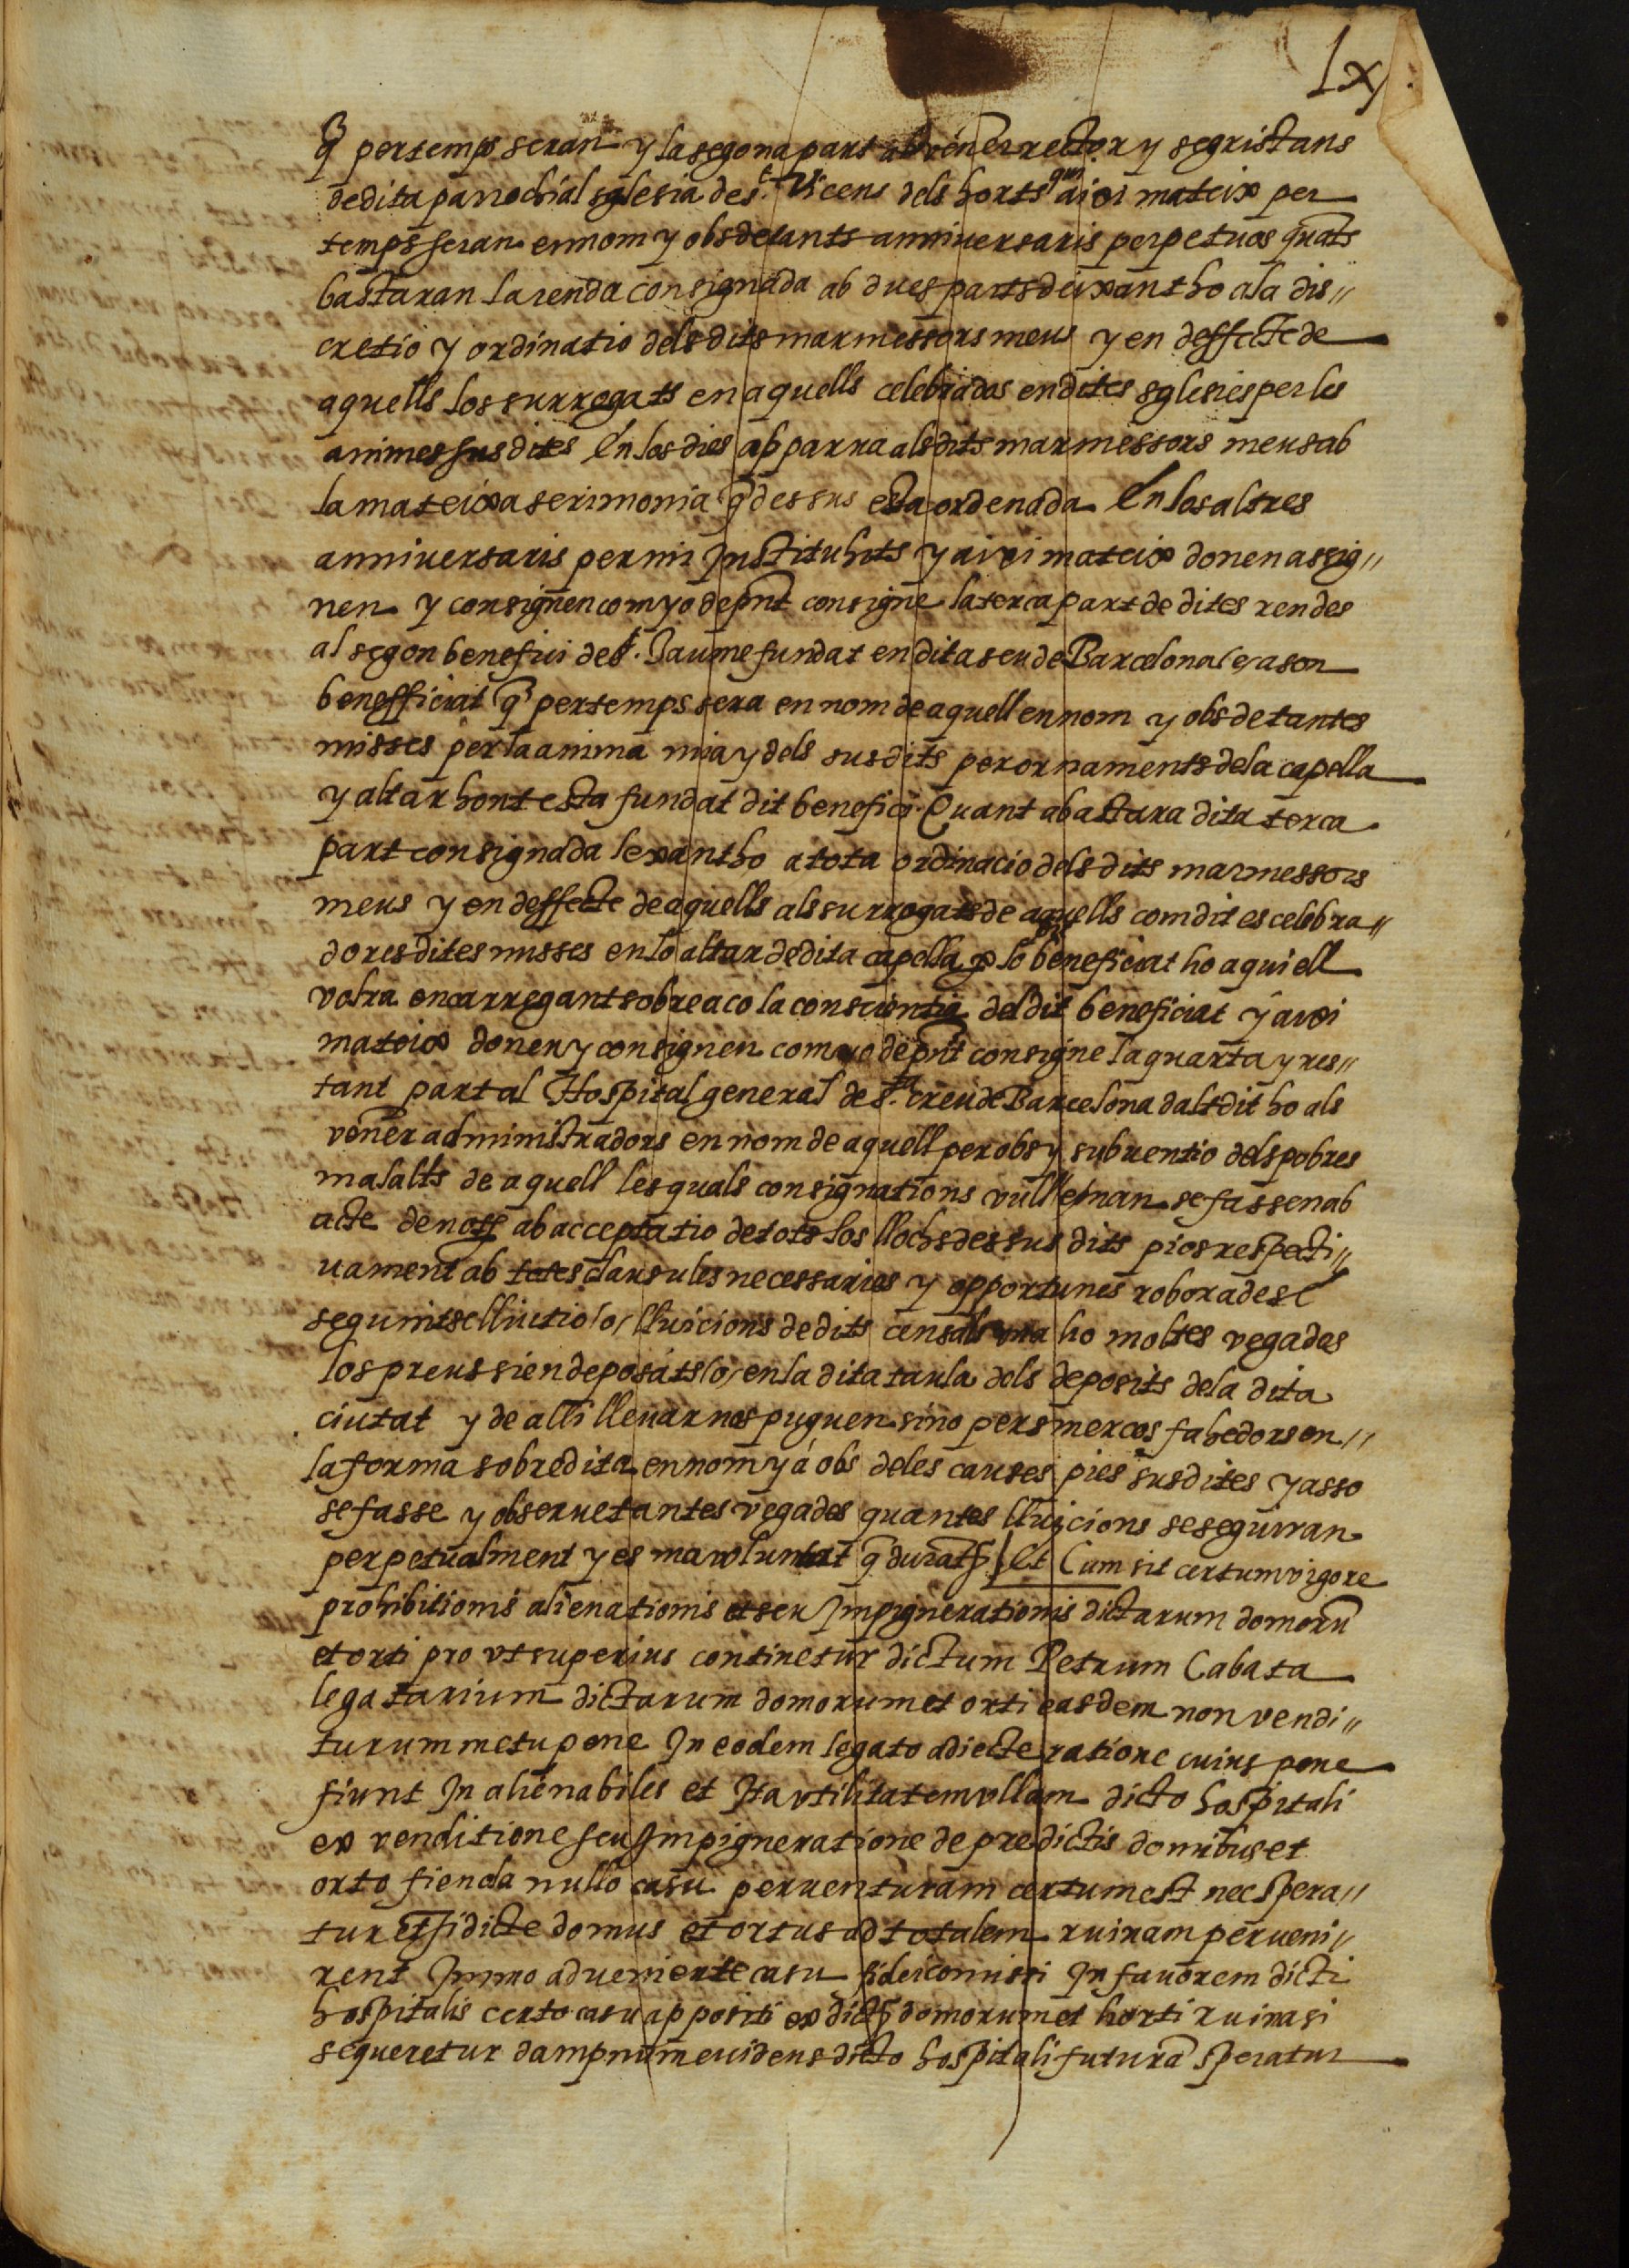 lxj
q̃ per temps seran y la segona part al vener rector y segristans
de dita parrochial sglesia de s.t Vicens dels horts qui aixi mateix per
temps seran en nom y obs de tants anniuersaris perpetuos quãts
bastaran la renda consignada ab dues parts deixantho a la dis//
cretio y ordinatio dels dits marmessors meus y en deffecte de
aquells los surrogats en aquells celebradas en dites sglesies per les
animes susdites En los dies ab parra als dits marmessors meus ab
la mateixa serimonia q̃ dessus esta ordenada En los altres
anniuersaris per mi Instituhits y aixi mateix donen assig//
nen y consignen com yo de pñt consigne la terca part de dites rendes
al segon benefici de s.t Jaume fundat en dita seu de Barcelona (e, a son
benefficiat q̃ per temps sera en nom de aquell en nom y obs de tantes
misses per la anima mia y dels susdits per ornaments de la capella
y altar hont esta fundat dit benefici. Quant abastara dita terca
part consignada lexantho a tota ordinacio dels dits marmessors
meus y en deffecte de aquells als surrogats de aquells com dit es celebra//
dores dites misses en lo altar de dita capella p lo beneficiat ho a qui ell
volra encarregant sobre aco la conscientia del dit beneficiat y aixi
mateix donen y consignen com yo de pñt consigne la quarta y res//
tant part al Hospital general de s.ta creu de Barcelona dalt dit ho als
vener administradors en nom de aquell per obs y subuentio dels pobres
malalts de aquell les quals consignations vull e man se fassen ab
acte de noť ab acceptatio de tots los llochs dessus dits pios respecti//
uament ab totes clausules necessaries y opportunes roborades E
seguintse lluitio (o, lluicions de dits censals vna ho moltes vegades
los preus sien deposats (o, en la dita taula dels deposits de la dita
ciutat y de alli lleuar nos puguen sino per smercos fahedors en//
la forma sobredita en nom y á obs de les causes pies susdites y asso
se fasse y obserue tantes vegades quantes lluicions se seguiran
perpetualment y es ma voluntat q̃ durať Et Cum sit certum vigore
prohibitionis alienationis et seu Impignerationis dictarum domorũ
et orti pro vt superius continetur dictum Petrum Cabata
legatarium dictarum domorum et orti easdem non vendi//
turum metu pene In eodem legato adiecte ratione cuius pene
fiunt In alienabiles et Ita vtilitatem vllam dicto hospitali
ex venditione seu Impigneratione de predictis domibus et
orto fienda nullo casu peruenturam certum est nec spera//
tur etsi dicte domus et ortus ad totalem ruinam perueni//
rent Immo adueniente casu fideicomissi In fauorem dicti
hospitalis certo casu appositi ex dicť domorum et horti ruina si
sequeretur dampnum euidens dicto hospitali futurã speratur